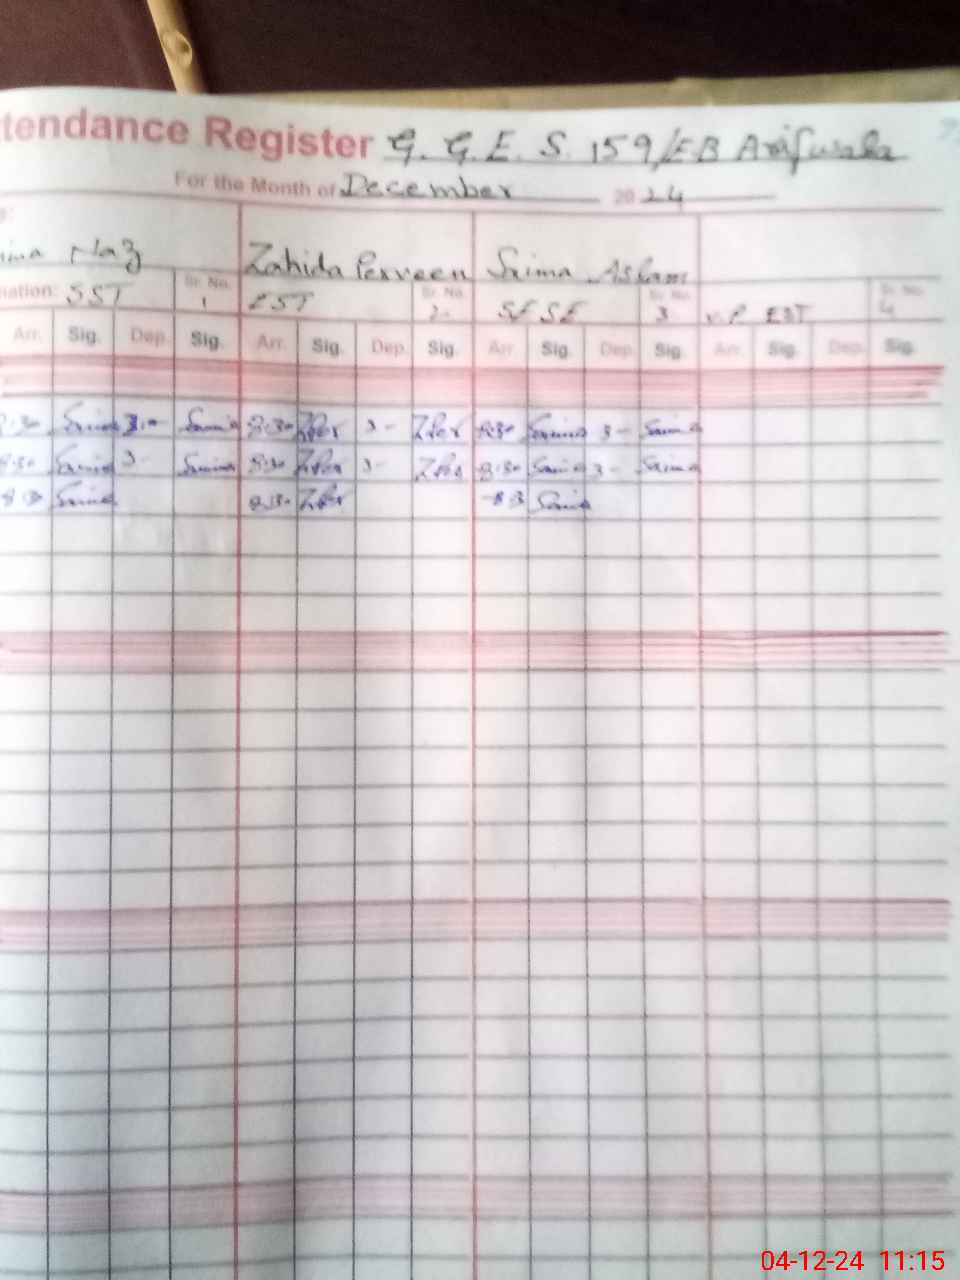 tendance Register G. G. E. S. 159/EB Arifwala
For the Month of December 2024
Naz Zahida Perveen Saima Aslam
nation: SST Sr. No. 1 EST Sr. No. 2- SESE Sr. No. 3 V.P EST Sr. No. 4
Arr. Sig. Dep. Sig. Arr. Sig. Dep. Sig. Arr. Sig. Dep. Sig. Arr. Sig. Dep. Sig.
Saima 3- Saima 8:30 3- 8:30 Saima 3- Saima
8:30 Saima 3- Saima 8:30 3- 8:30 Saima 3- Saima
8 3 Saima 8:30 8 3 Saima
04-12-24 11:15